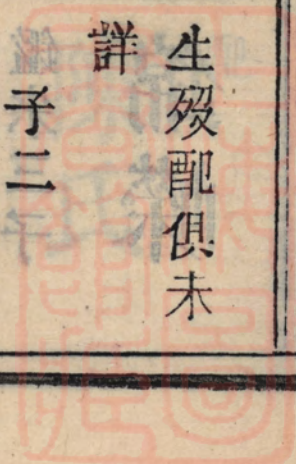 生歿配俱未
詳
子二